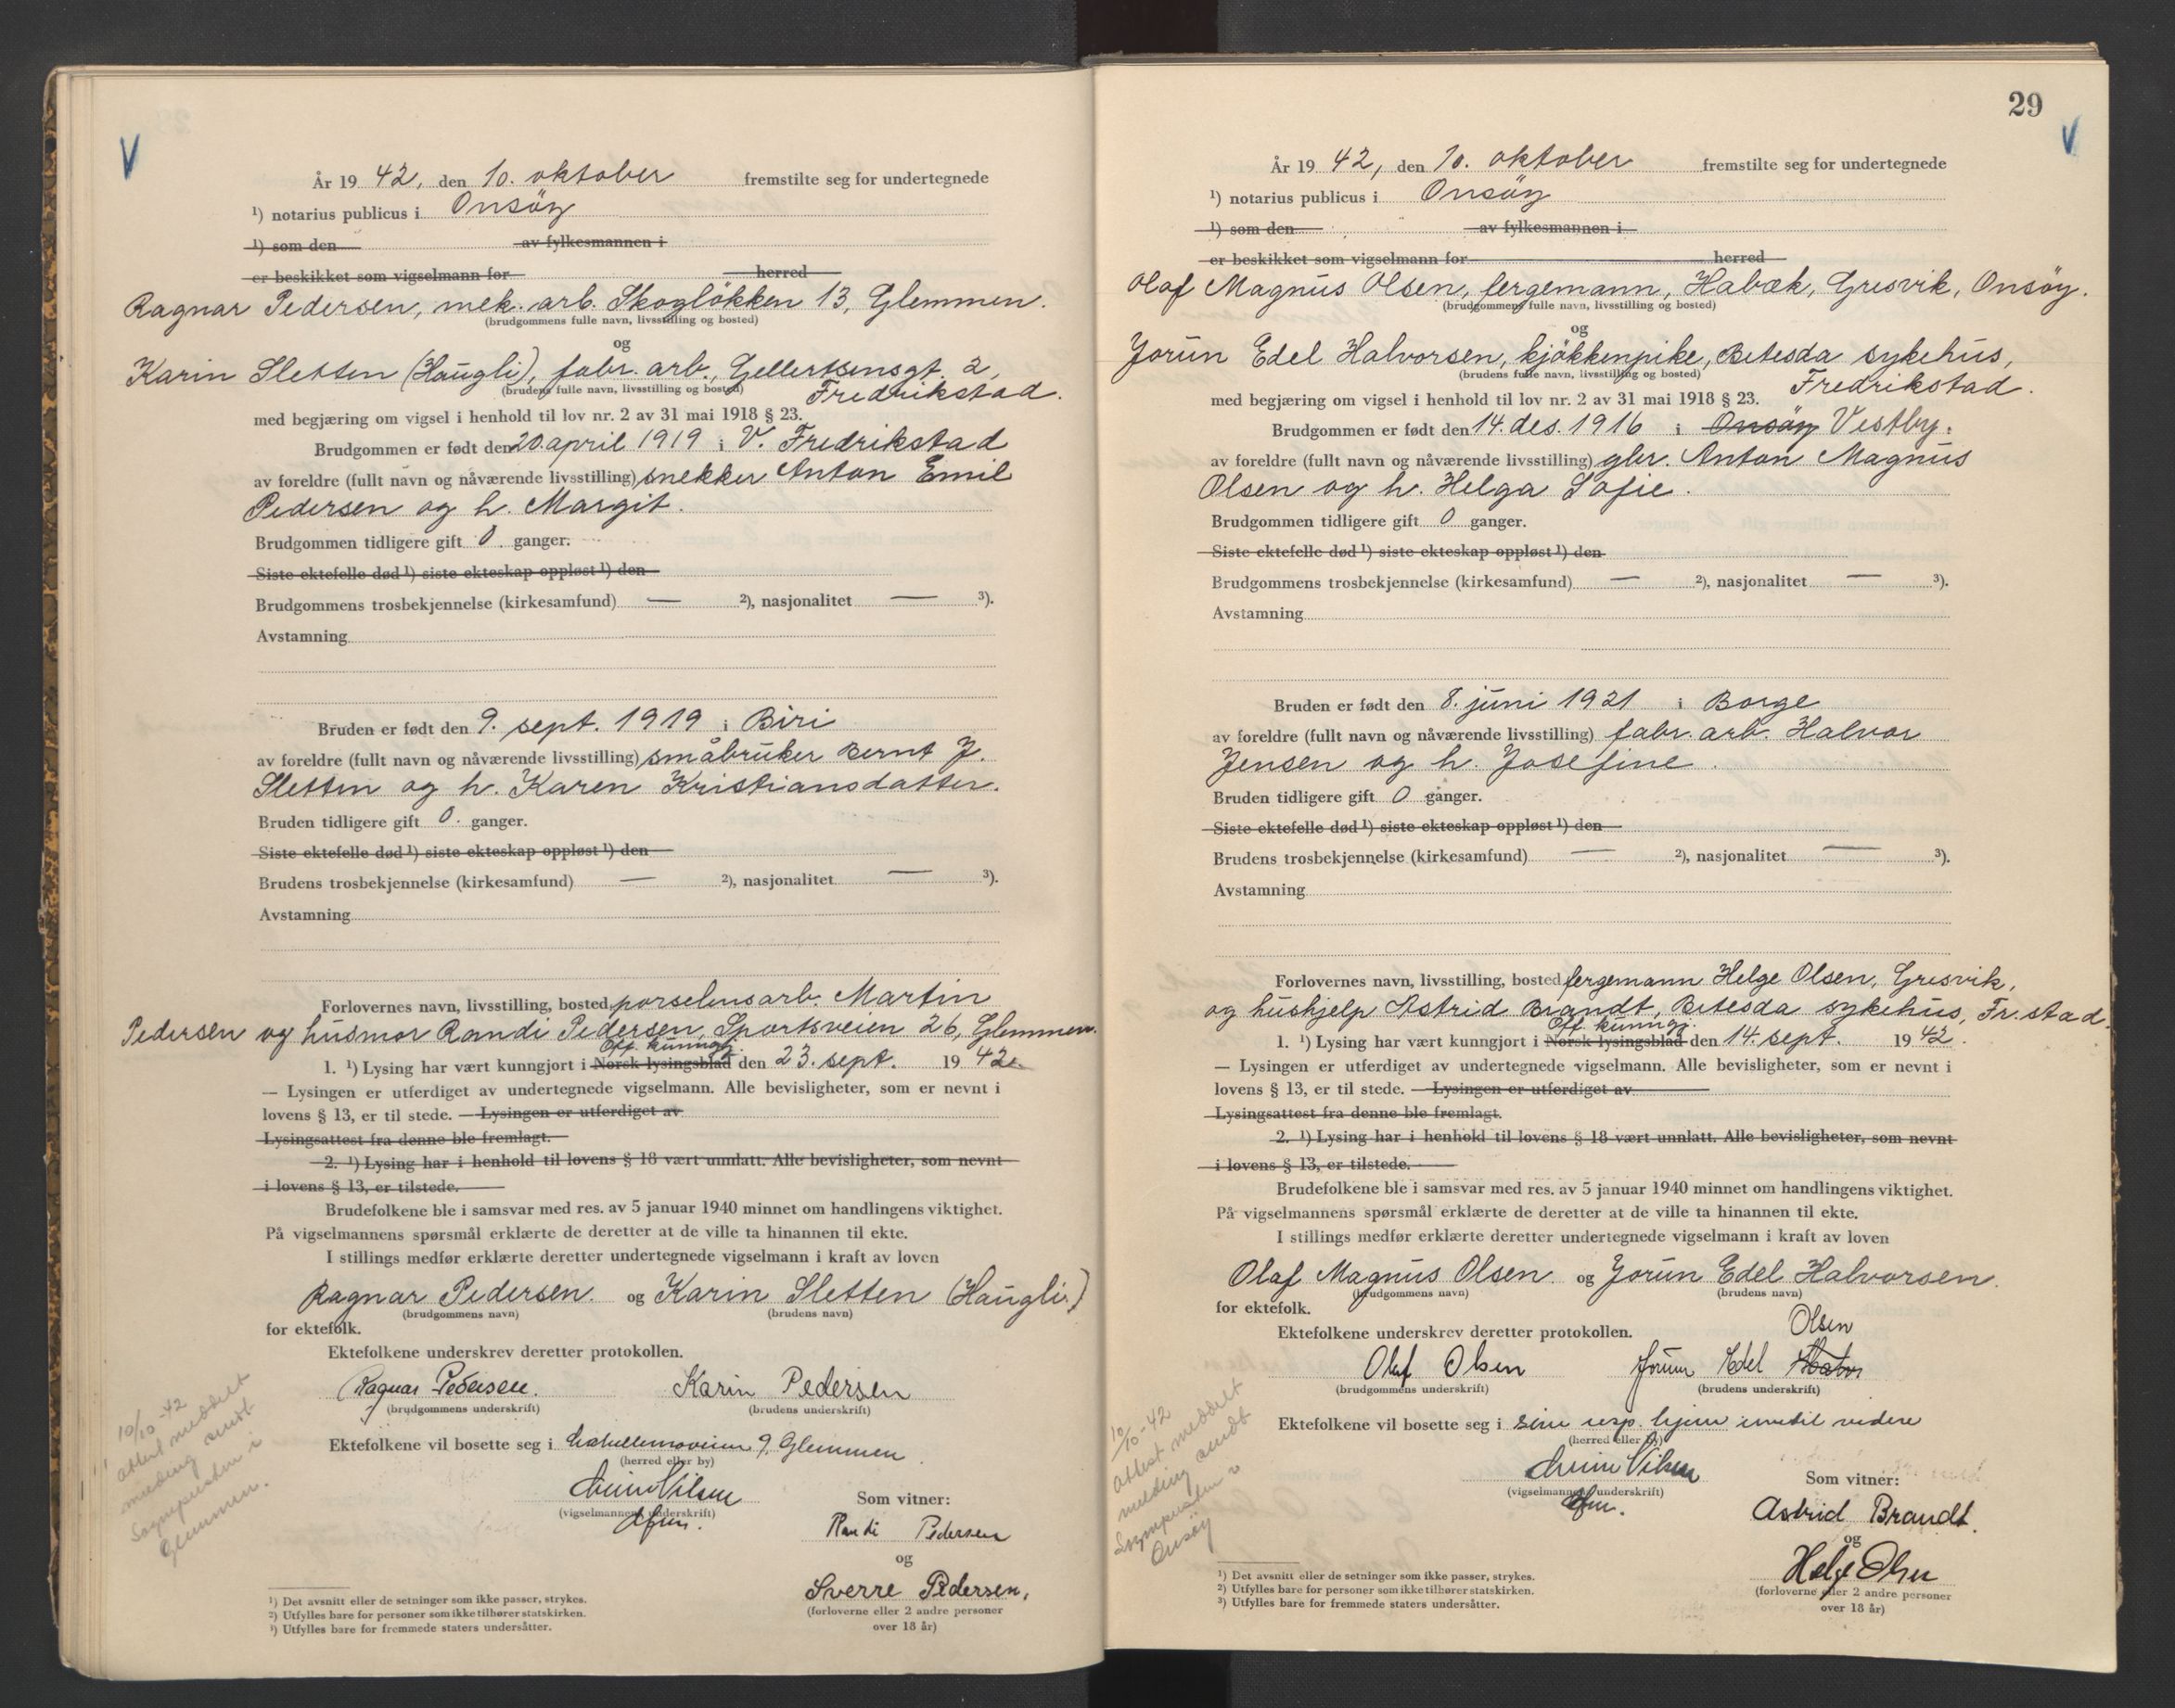 År 1942, den 10. oktober fremstilte seg for undertegnede
¹) notarius publicus i Onsöy
¹) som den av fylkesmannen i
er beskikket som vigselmann for herred
Ragnar Pedersen, mek. arb. Skogløkken 13, Glemmen.
(brudgommens fulle navn, livsstilling og bosted)
og
Karin Sletten (Haugli), fabr. arb., Gellertsensgt. 2,
(brudens fulle navn, livsstilling og bosted)
Fredrikstad.
med begjæring om vigsel i henhold til lov nr. 2 av 31 mai 1918 § 23.
Brudgommen er født den 20 april 1919 i V. Fredrikstad
av foreldre (fullt navn og nåværende livsstilling) snekker Anton Emil
Pedersen og h. Margit.
Brudgommen tidligere gift 0 ganger.
Siste ektefelle død ¹) siste ekteskap oppløst ¹) den
Brudgommens trosbekjennelse (kirkesamfund) — ²), nasjonalitet — ³).
Avstamning
Bruden er født den 9. sept. 1919 i Biri
av foreldre (fullt navn og nåværende livsstilling) småbruker Bernt J.
Sletten og h. Karen Kristiansdatter.
Bruden tidligere gift 0. ganger.
Siste ektefelle død ¹) siste ekteskap oppløst ¹) den
Brudens trosbekjennelse (kirkesamfund) — ²), nasjonalitet — ³).
Avstamning
Forlovernes navn, livsstilling, bosted porselensarb. Martin
Pedersen og husmor Randi Pedersen, Sportsveien 26, Glemmen.
Off. kunngj.
1. ¹) Lysing har vært kunngjort i Norsk lysingsblad den 23. sept. 1942.
— Lysingen er utferdiget av undertegnede vigselmann. Alle bevisligheter, som er nevnt i
lovens § 13, er til stede. — Lysingen er utferdiget av
Lysingsattest fra denne ble fremlagt.
2. ¹) Lysing har i henhold til lovens § 18 vært unnlatt. Alle bevisligheter, som nevnt
i lovens § 13, er tilstede.
Brudefolkene ble i samsvar med res. av 5 januar 1940 minnet om handlingens viktighet.
På vigselmannens spørsmål erklærte de deretter at de ville ta hinannen til ekte.
I stillings medfør erklærte deretter undertegnede vigselmann i kraft av loven
Ragnar Pedersen. og Karin Sletten (Haugli)
(brudgommens navn) (brudens navn)
for ektefolk.
Ektefolkene underskrev deretter protokollen.
Ragnar Pedersen. Karin Pedersen
(brudgommens underskrift) (brudens underskrift)
Ektefolkene vil bosette seg i 9, Glemmen
(herred eller by)
Nilsen
(vigselmannens underskrift)
Som vitner:
Randi Pedersen
og
Sverre Pedersen.
(forloverne eller 2 andre personer
over 18 år)
10/10-42
attest meddelt
melding sendt
Sognepresten i
Glemmen.
¹) Det avsnitt eller de setninger som ikke passer, strykes.
²) Utfylles bare for personer som ikke tilhører statskirken.
³) Utfylles bare for fremmede staters undersåtter.
29
År 1942, den 10. oktober fremstilte seg for undertegnede
¹) notarius publicus i Onsöy
¹) som den av fylkesmannen i
er beskikket som vigselmann for herred
Olaf Magnus Olsen, fergemann, Habæk, Gresvik, Onsöy.
(brudgommens fulle navn, livsstilling og bosted)
og
Jorun Edel Halvorsen, kjökkenpike, Betesda sykehus,
(brudens fulle navn, livsstilling og bosted)
Fredrikstad.
med begjæring om vigsel i henhold til lov nr. 2 av 31 mai 1918 § 23.
Brudgommen er født den 14. des. 1916 i Onsöy Vestby.
av foreldre (fullt navn og nåværende livsstilling) gbr. Anton Magnus
Olsen og h. Helga Sofie.
Brudgommen tidligere gift 0 ganger.
Siste ektefelle død ¹) siste ekteskap oppløst ¹) den
Brudgommens trosbekjennelse (kirkesamfund) — ²), nasjonalitet — ³).
Avstamning
Bruden er født den 8. juni 1921 i Borge
av foreldre (fullt navn og nåværende livsstilling) fabr. arb. Halvor
Jensen og h. Josefine.
Bruden tidligere gift 0 ganger.
Siste ektefelle død ¹) siste ekteskap oppløst ¹) den
Brudens trosbekjennelse (kirkesamfund) — ²), nasjonalitet — ³).
Avstamning
Forlovernes navn, livsstilling, bosted fergemann Helge Olsen, Gresvik,
og hushjelp Astrid Brandt, Betesda sykehus, Fr.stad.
Off. kunngj.
1. ¹) Lysing har vært kunngjort i Norsk lysingsblad den 14. sept. 1942.
— Lysingen er utferdiget av undertegnede vigselmann. Alle bevisligheter, som er nevnt i
lovens § 13, er til stede. — Lysingen er utferdiget av
Lysingsattest fra denne ble fremlagt.
2. ¹) Lysing har i henhold til lovens § 18 vært unnlatt. Alle bevisligheter, som nevnt
i lovens § 13, er tilstede.
Brudefolkene ble i samsvar med res. av 5 januar 1940 minnet om handlingens viktighet.
På vigselmannens spørsmål erklærte de deretter at de ville ta hinannen til ekte.
I stillings medfør erklærte deretter undertegnede vigselmann i kraft av loven
Olaf Magnus Olsen og Jorun Edel Halvorsen.
(brudgommens navn) (brudens navn)
for ektefolk.
Ektefolkene underskrev deretter protokollen.
Olsen
Olaf Olsen Jorun Edel
(brudgommens underskrift) (brudens underskrift)
Ektefolkene vil bosette seg i sine resp. hjem inntil videre
(herred eller by)
Nilsen
(vigselmannens underskrift)
Som vitner:
Astrid Brandt.
og
Helge Olsen
(forloverne eller 2 andre personer
over 18 år)
10/10-42
attest meddelt
melding sendt
Sognepresten i
Onsöy
¹) Det avsnitt eller de setninger som ikke passer, strykes.
²) Utfylles bare for personer som ikke tilhører statskirken.
³) Utfylles bare for fremmede staters undersåtter.